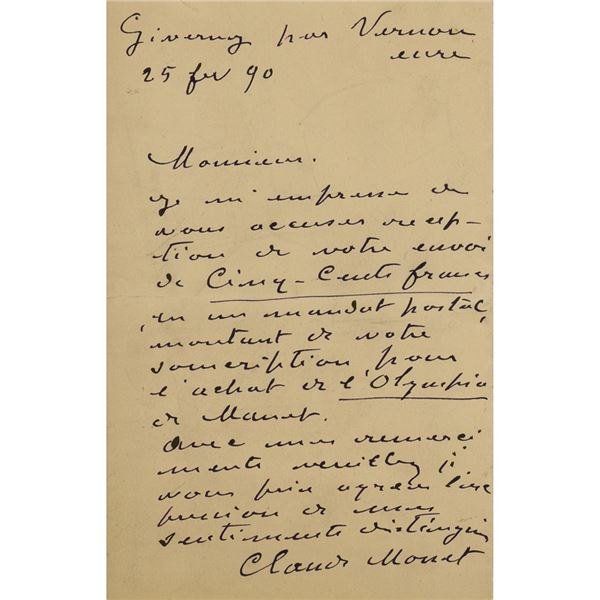 Giverny par Vernon
eure
25 fev 90
Monsieur.
je m'empresse de
vous accuser récep-
tion de votre envoi
de Cinq-Cents francs
en un mandat postal,
montant de votre
souscription pour
l'achat de l'Olympia
de Manet.
avec mes remerci
ments veuillez je
vous prie agréer l'ex
pression de mes
sentiments distingués
Claude Monet